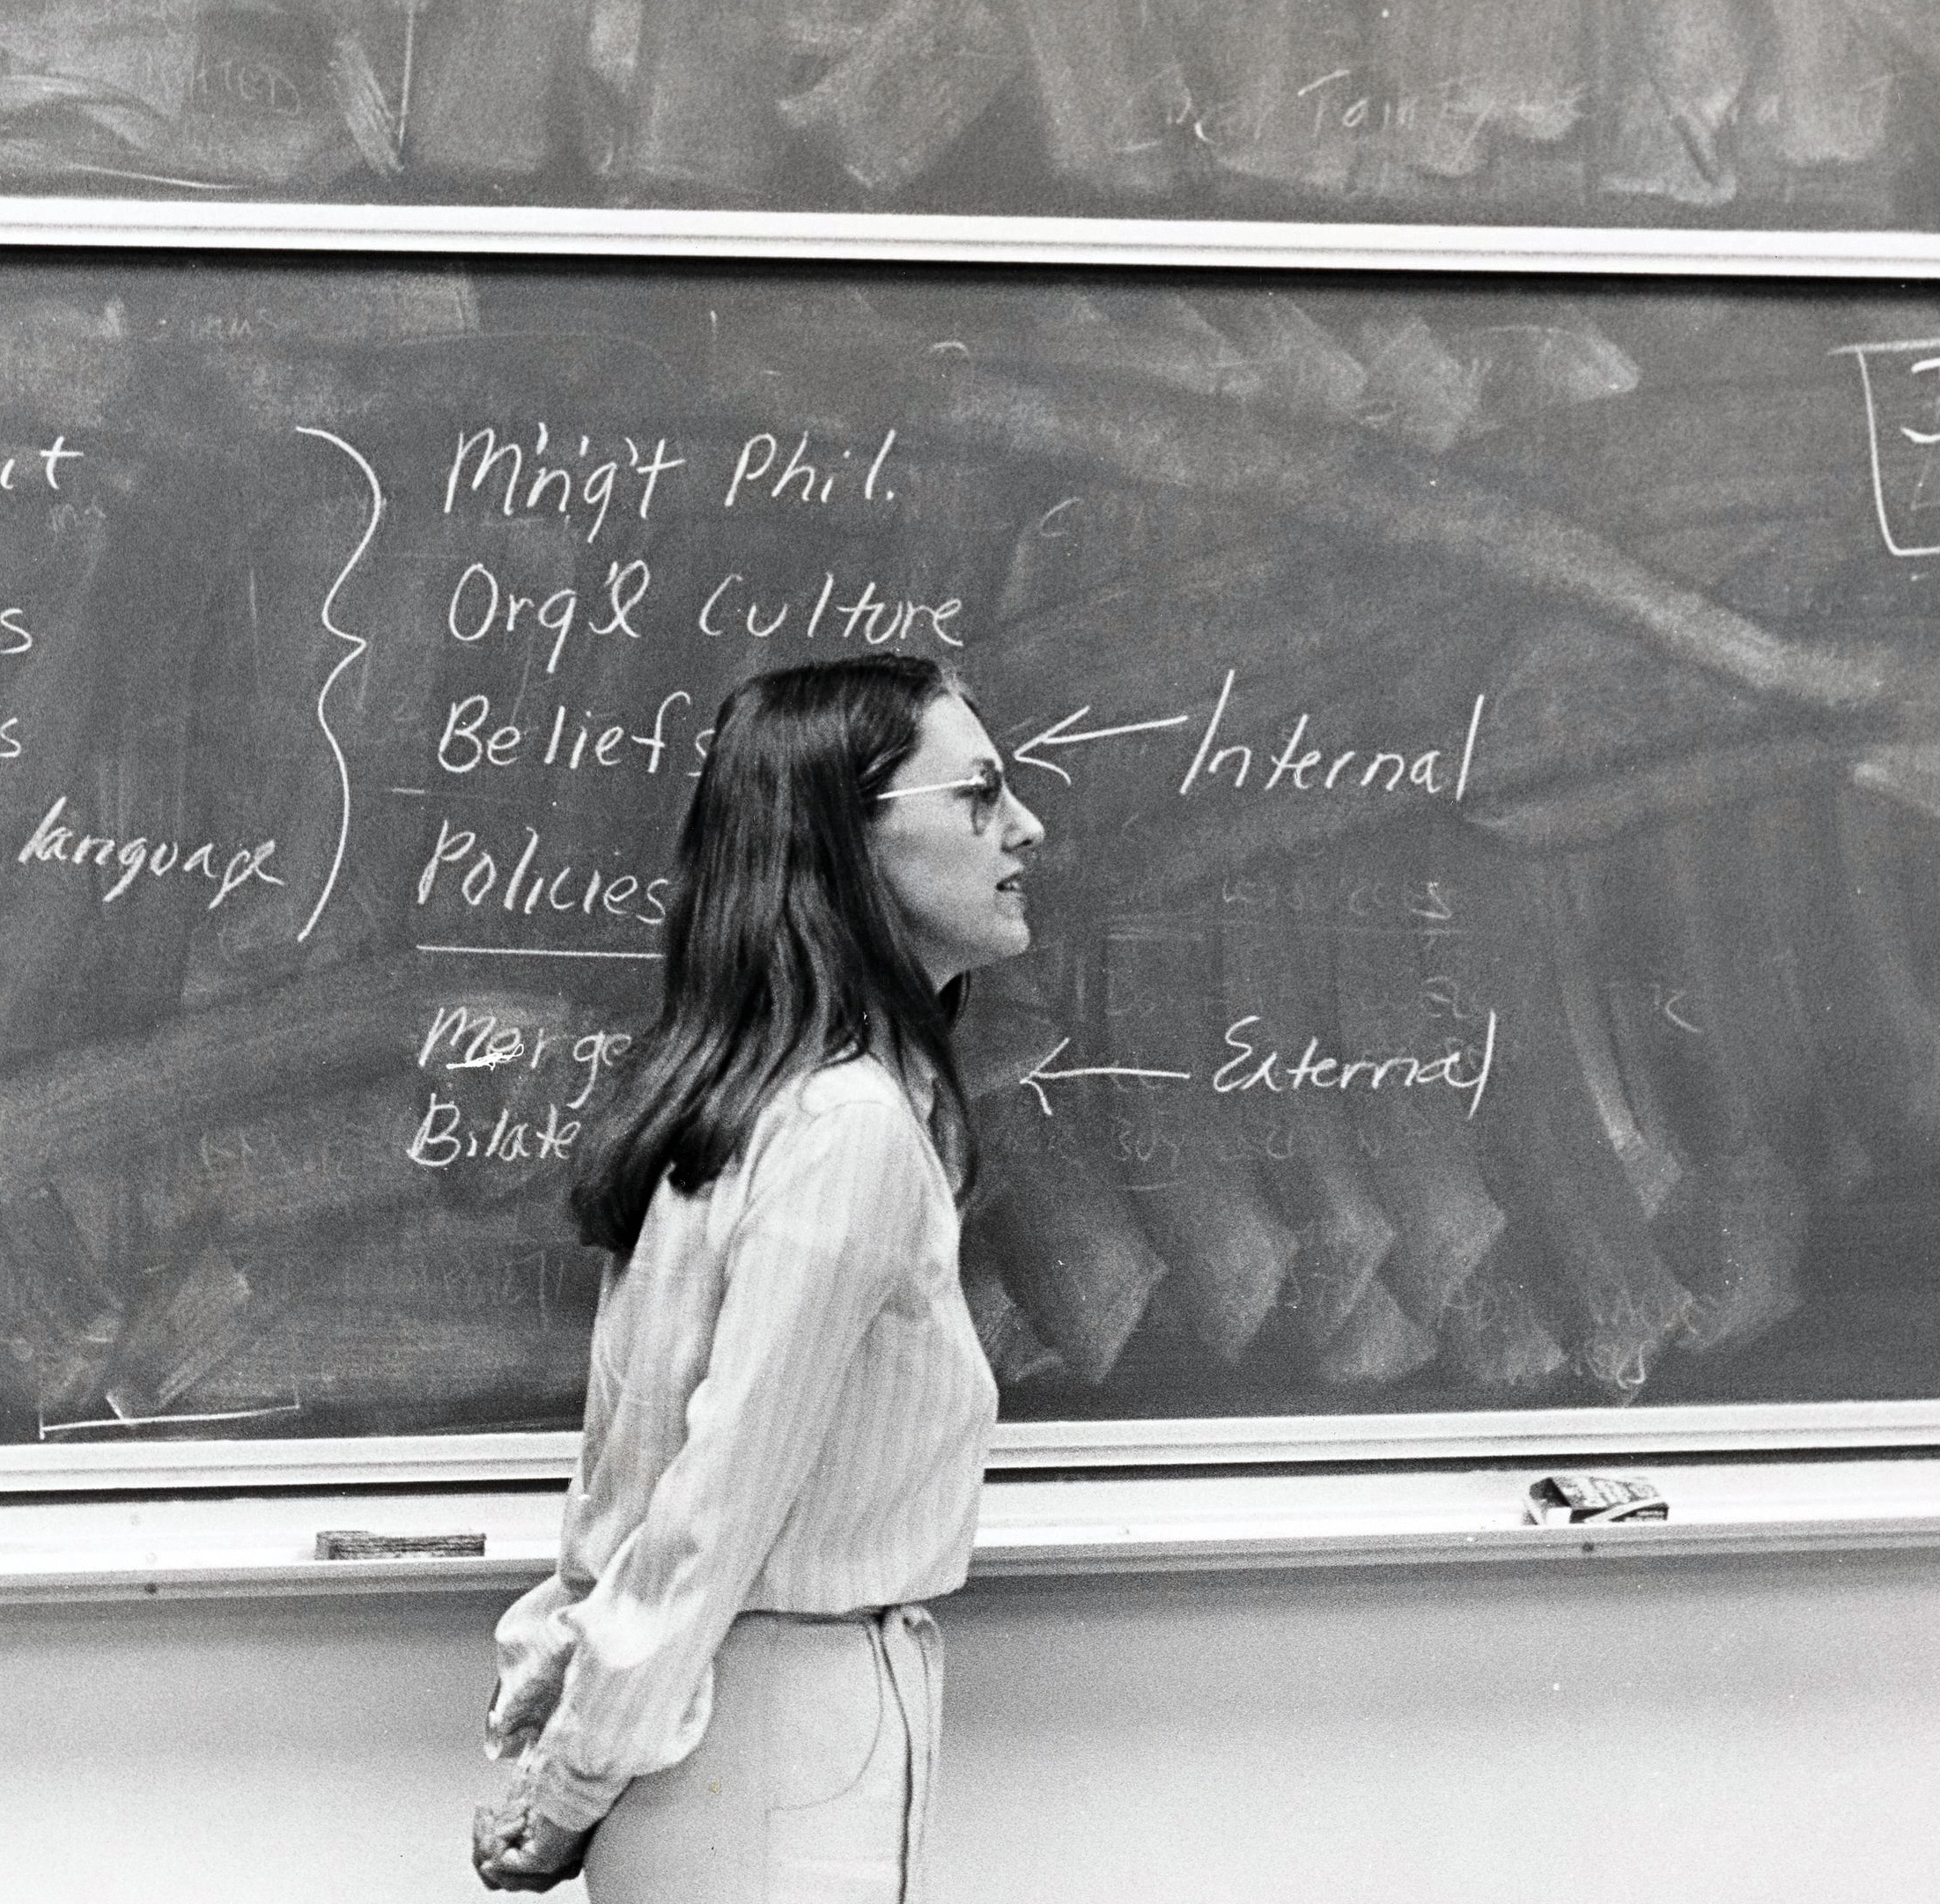 M'n'g't Phil.
Org'l Culture
Beliefs
Internal
language
Policies
Merge
External
Bilate